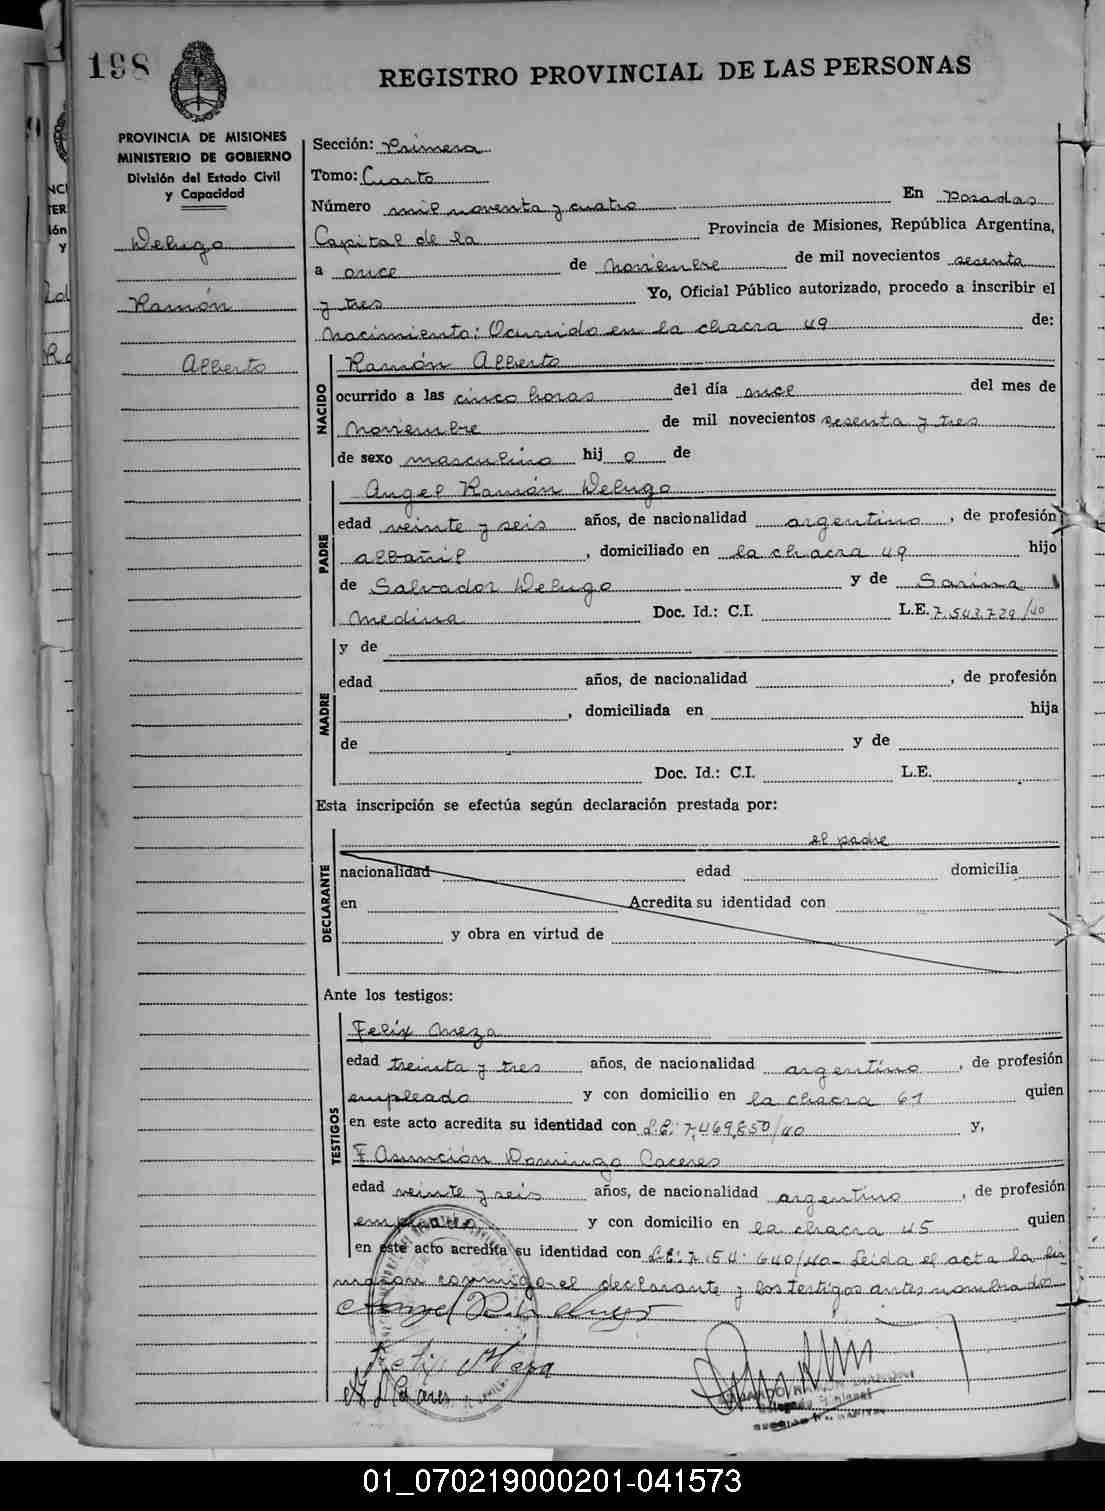 198
REGISTRO PROVINCIAL DE LAS PERSONAS
PROVINCIA DE MISIONES
MINISTERIO DE GOBIERNO
División del Estado Civil
y Capacidad
Welugo
Ramón
Alberto
Sección: Primera
Tomo: Cuarto
Número mil noventa y cuatro En Posadas
Capital de la Provincia de Misiones, República Argentina,
a once de Noviembre de mil novecientos sesenta
y tres Yo, Oficial Público autorizado, procedo a inscribir el
Nacimiento: Ocurrido en la chacra 49 de:
NACIDO
Ramón Alberto
ocurrido a las cinco horas del día once del mes de
Noviembre de mil novecientos sesenta y tres
de sexo masculino hij o de
PADRE
Angel Ramón Welugo
edad veinte y seis años, de nacionalidad argentino, de profesión
albañil, domiciliado en la chacra 49 hijo
de Salvador Welugo y de Sarina
Medina Doc. Id.: C.I. L.E. 7.543.729/40
MADRE
y de
edad años, de nacionalidad , de profesión
, domiciliada en hija
de y de
Doc. Id.: C.I. L.E.
Esta inscripción se efectúa según declaración prestada por:
DECLARANTE
el padre
nacionalidad edad domicilia
en Acredita su identidad con
y obra en virtud de
Ante los testigos:
TESTIGOS
Felix Meza
edad treinta y tres años, de nacionalidad argentino, de profesión
empleado y con domicilio en la chacra 61 quien
en este acto acredita su identidad con L.E: 7,469,850/40 y,
F. Asunción Domingo Caceres
edad veinte y seis años, de nacionalidad argentino, de profesión
empleado y con domicilio en la chacra 45 quien
en este acto acredita su identidad con L.E: 7.54 640/40- Leida el acta la fir
maron conmigo el declarante y los testigos antes nombrados
Felix Meza
01_070219000201-041573